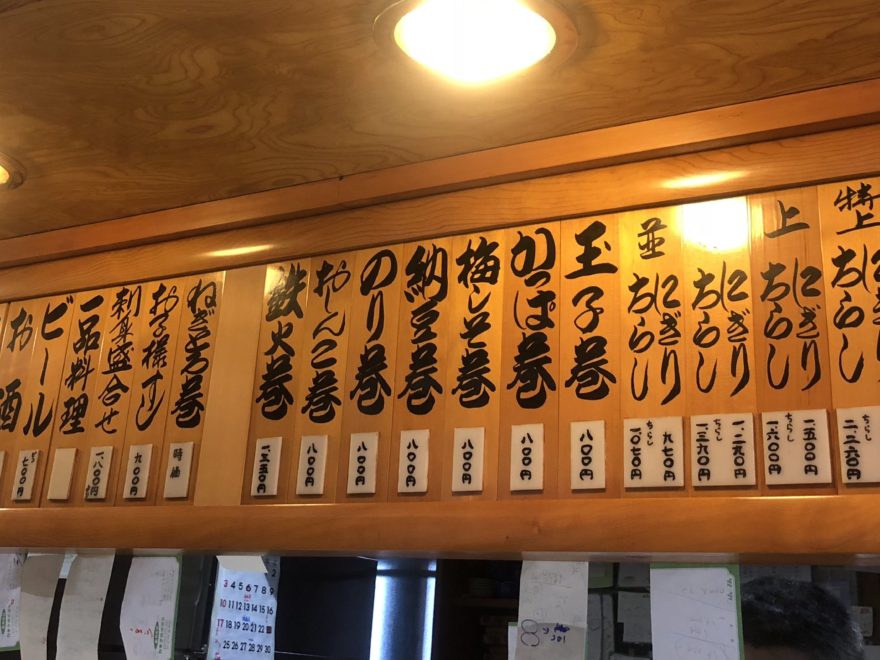 特上
ちらし
二、二六〇円
上
にぎり
ちらし
一五〇〇円
ちらし
一六〇〇円
にぎり
ちらし
一、二九〇円
ちらし
一三九〇円
並
にぎり
ちらし
九七〇円
ちらし
一〇七〇円
玉子巻
八〇〇円
かっぱ巻
八〇〇円
梅しそ巻
八〇〇円
納豆巻
八〇〇円
のり巻
八〇〇円
おしんこ巻
八〇〇円
鉄火巻
一三五〇円
ねぎとろ巻
時価
お子様すし
九〇〇円
刺身盛合せ
一、八〇〇円
一品料理
ビール
七〇〇円
お酒
3 4 5 6 7 8 9
10 11 12 13 14 15 16
17 18 19 20 21 22 23
25 26 27 28 29 30